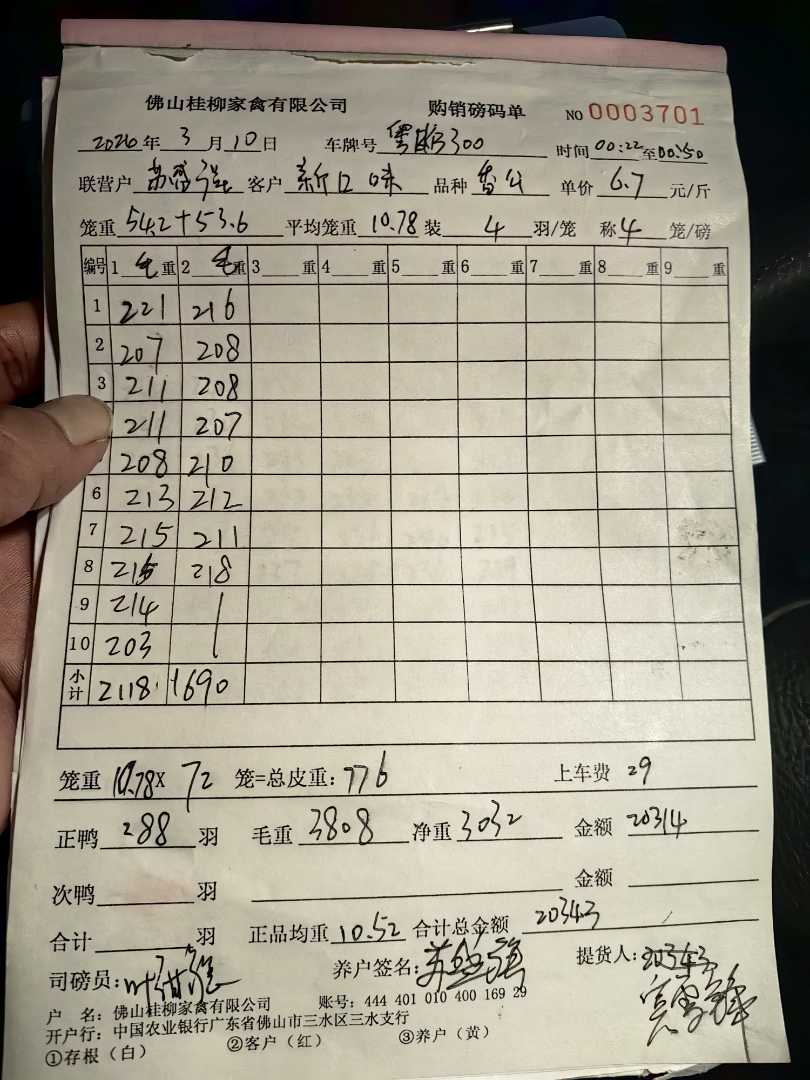 佛山桂柳家禽有限公司 购销磅码单 NO 0003701
2026年3月10日 车牌号 300 时间 00:22至00:50
联营户 苏 客户 新口味 品种 香公 单价 6.7 元/斤
笼重 54.2+53.6 平均笼重 10.78 装 4 羽/笼 称 4 笼/磅
编号 1 毛重 2 毛重 3 重 4 重 5 重 6 重 7 重 8 重 9 重
1 221 216
2 207 208
3 211 208
211 207
208 210
6 213 212
7 215 211
8 215 218
9 214 /
10 203 /
小计 2118 1690
笼重 10.78× 72 笼=总皮重: 776 上车费 29
正鸭 288 羽 毛重 3808 净重 3032 金额 20314
次鸭 羽 金额
合计 羽 正品均重 10.52 合计总金额 20343
司磅员: 叶 养户签名: 苏 提货人: 20343
户 名: 佛山桂柳家禽有限公司 账号: 444 401 010 400 169 29
开户行: 中国农业银行广东省佛山市三水区三水支行
①存根（白） ②客户（红） ③养户（黄）